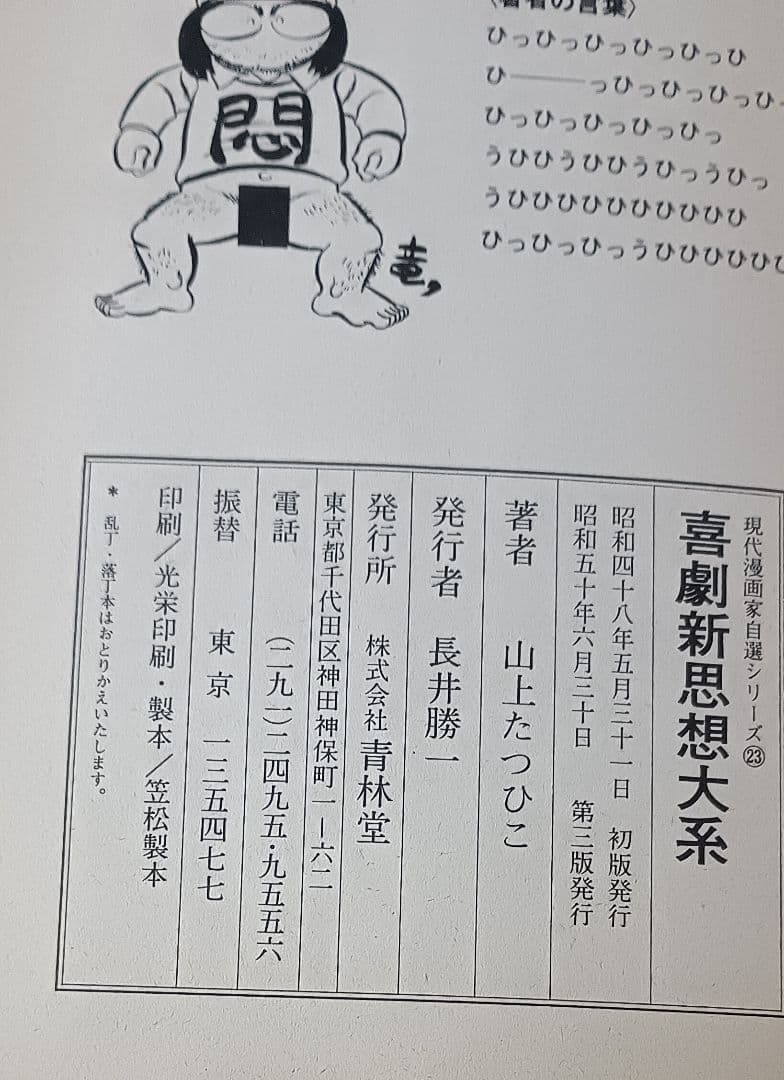 〈著者の言葉〉
ひっひっひっひっひっひ
ひ———っひっひっひっひ
ひっひっひっひっひっ
うひひうひひうひっうひっ
うひひひひひひひひひひ
ひっひっひっうひひひひひひ
悶
竜
現代漫画家自選シリーズ㉓
喜劇新思想大系
昭和四十八年五月三十一日 初版発行
昭和五十年六月三十日 第三版発行
著者 山上たつひこ
発行者 長井勝一
発行所 株式会社青林堂
東京都千代田区神田神保町一—六二
電話 (二九一)二四九五・九五五六
振替 東京 一三五四七七
印刷/光栄印刷・製本/笠松製本
* 乱丁・落丁本はおとりかえいたします。